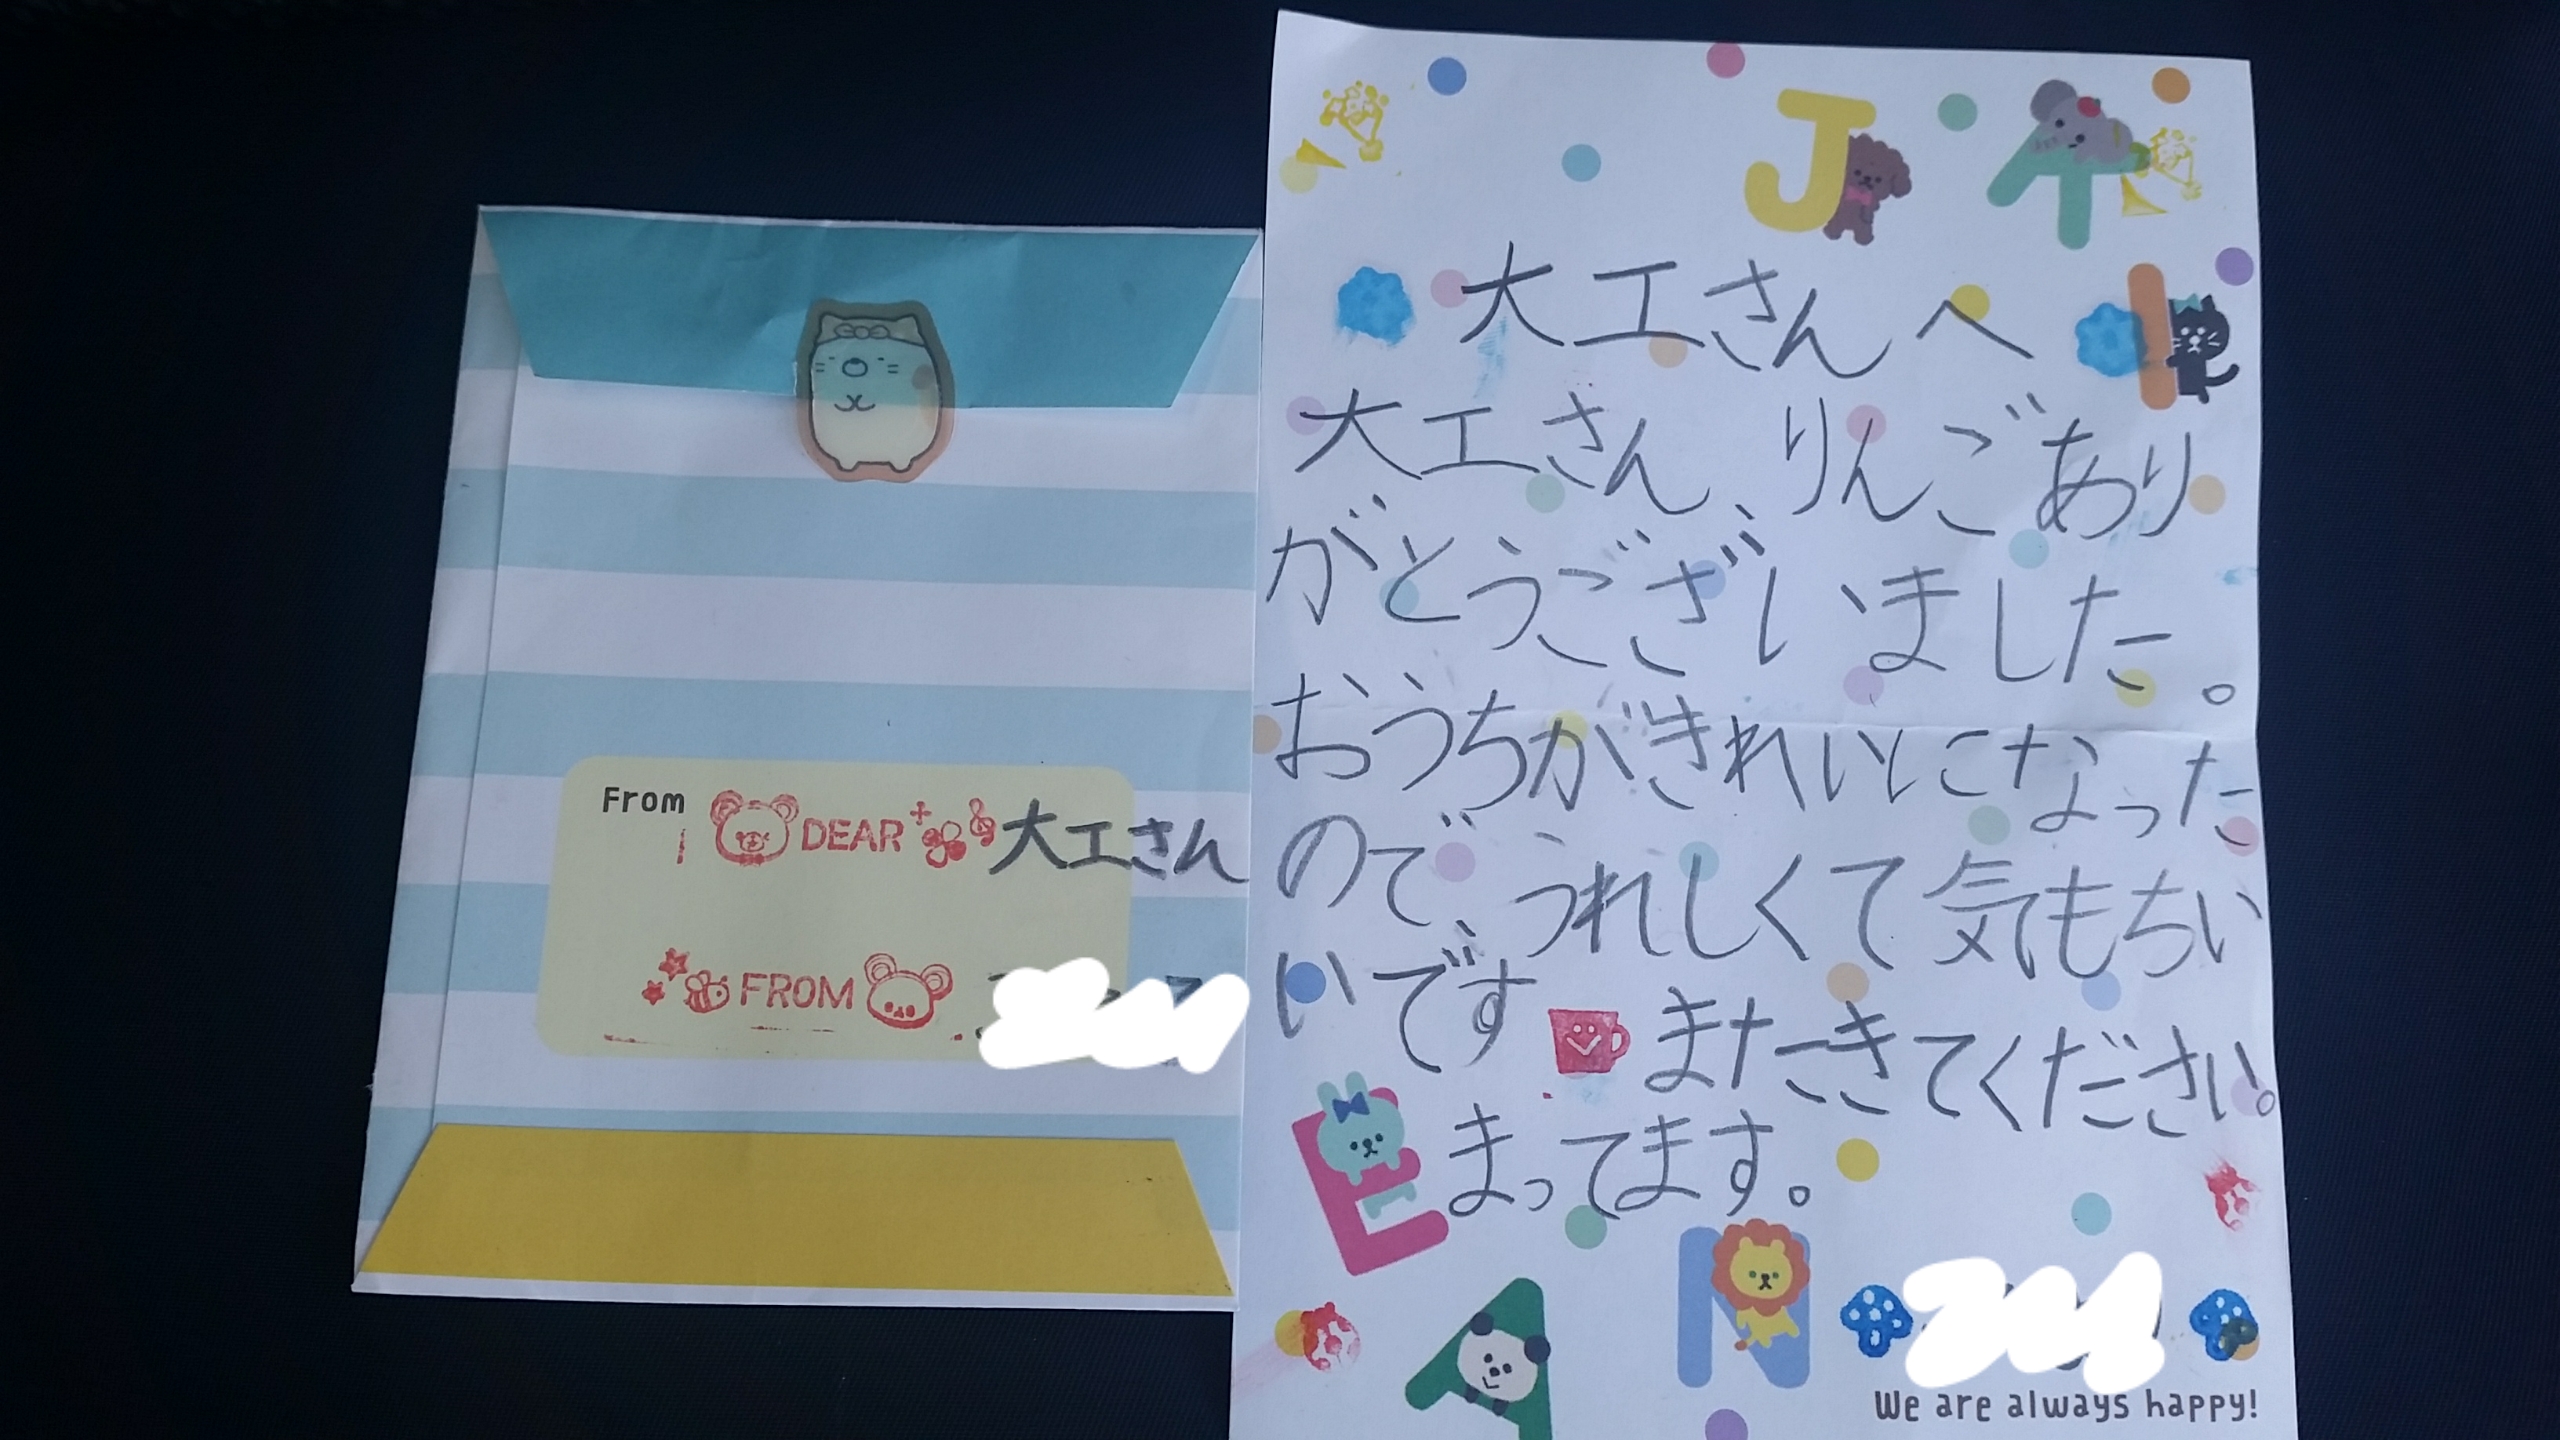 From
DEAR 大工さん
FROM
J
大工さんへ
大工さん、りんごあり
がとうございました。
おうちがきれいになった
ので、うれしくて気もちい
いです またきてください。
まってます。
We are always happy!